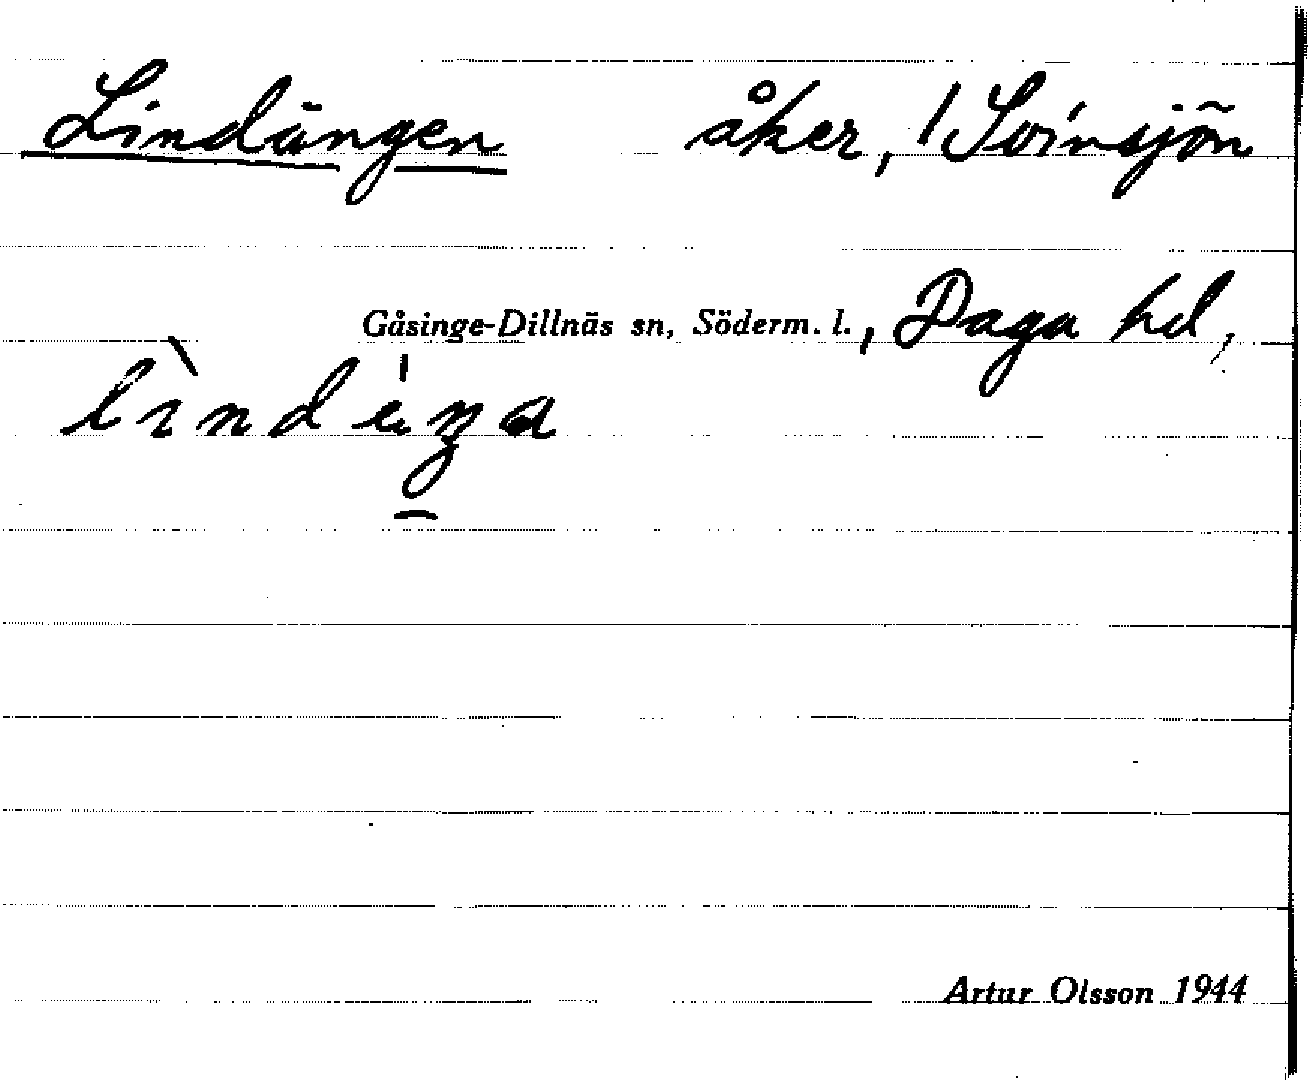 Lindängen åker, / Svinsjön
Gåsinge-Dillnäs sn, Söderm. l., Daga hd,
Artur Olsson 1944